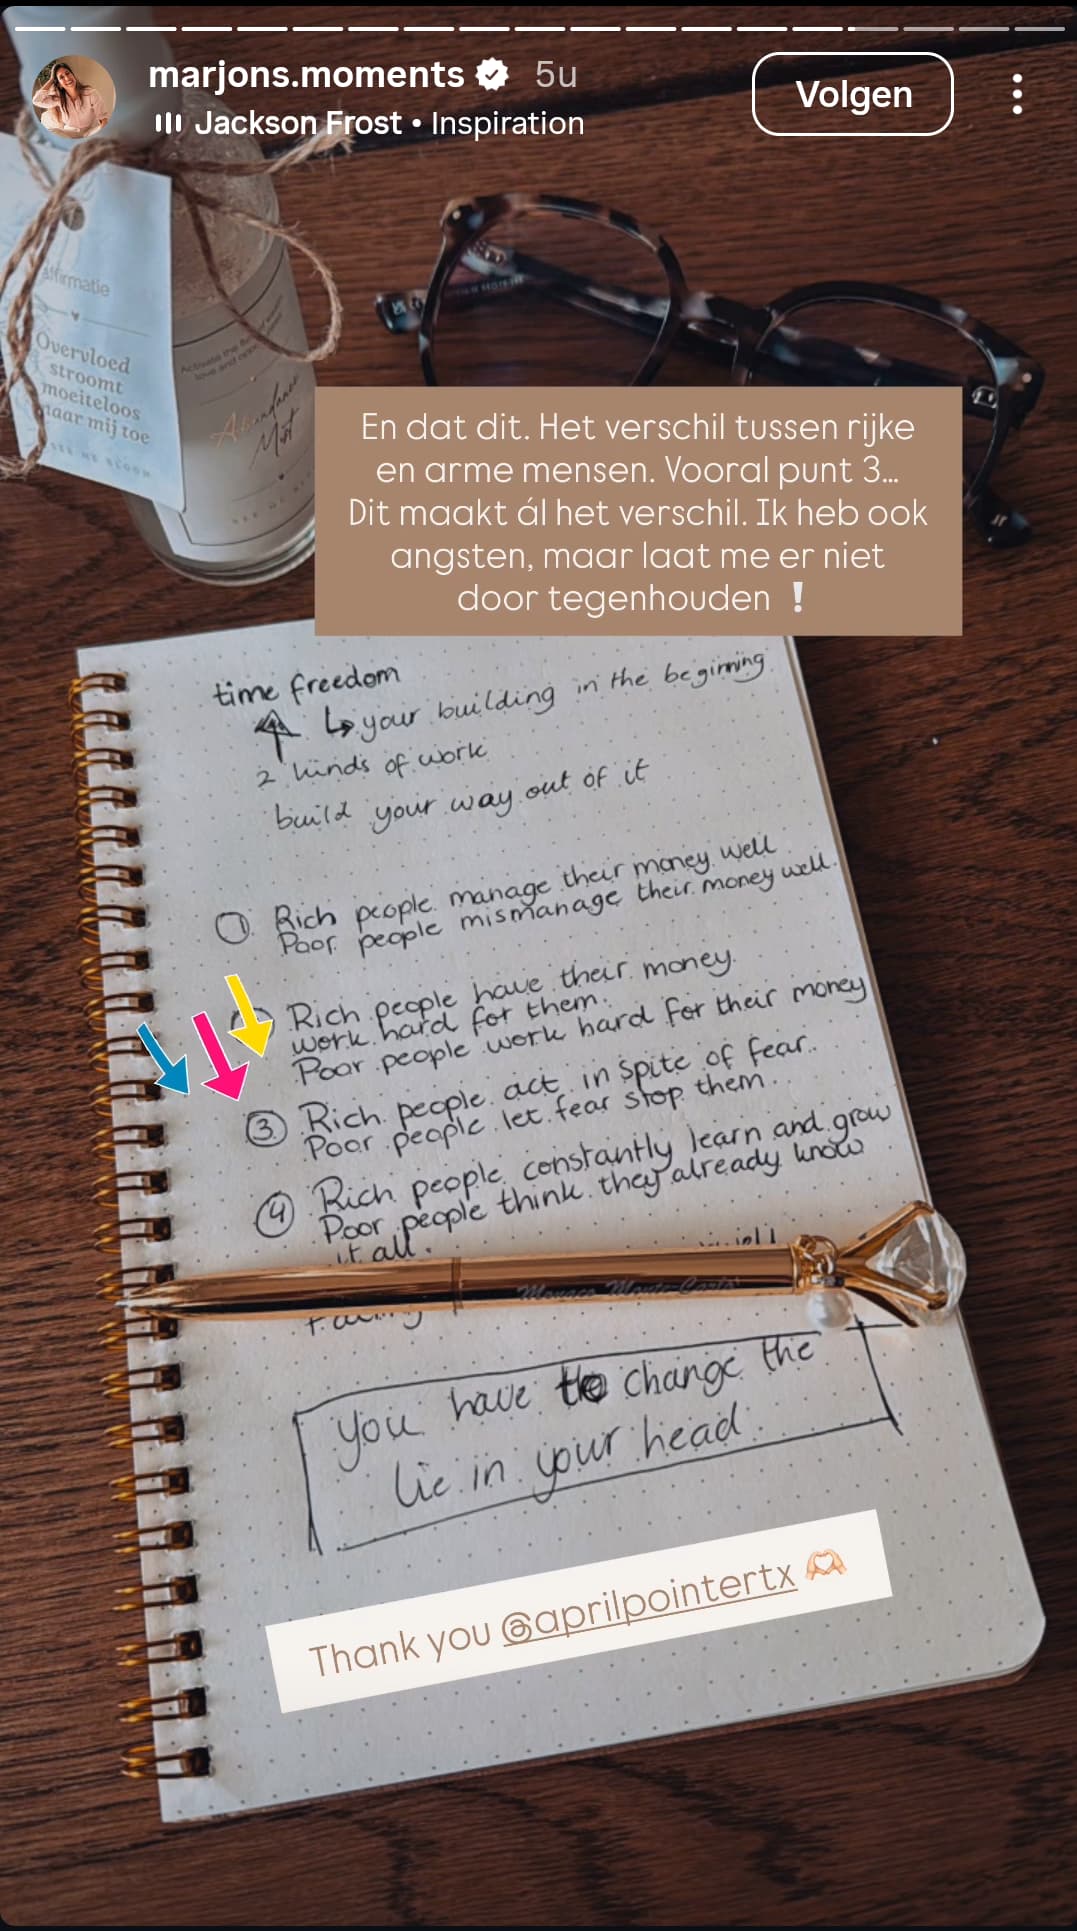 marjons.moments 5u
Volgen
Jackson Frost • Inspiration
affirmatie
Overvloed
stroomt
moeiteloos
naar mij toe
Abundance
Mist
En dat dit. Het verschil tussen rijke
en arme mensen. Vooral punt 3...
Dit maakt ál het verschil. Ik heb ook
angsten, maar laat me er niet
door tegenhouden ❕
time freedom
↳ your building in the beginning
2 kinds of work
build your way out of it
① Rich people manage their money well
Poor people mismanage their money well.
Rich people have their money
work hard for them.
Poor people work hard for their money
③ Rich people act in spite of fear.
Poor people let fear stop them.
④ Rich people constantly learn and grow
Poor people think they already know
it all.
You have to change the
lie in your head
Thank you @aprilpointertx 🫶🏻